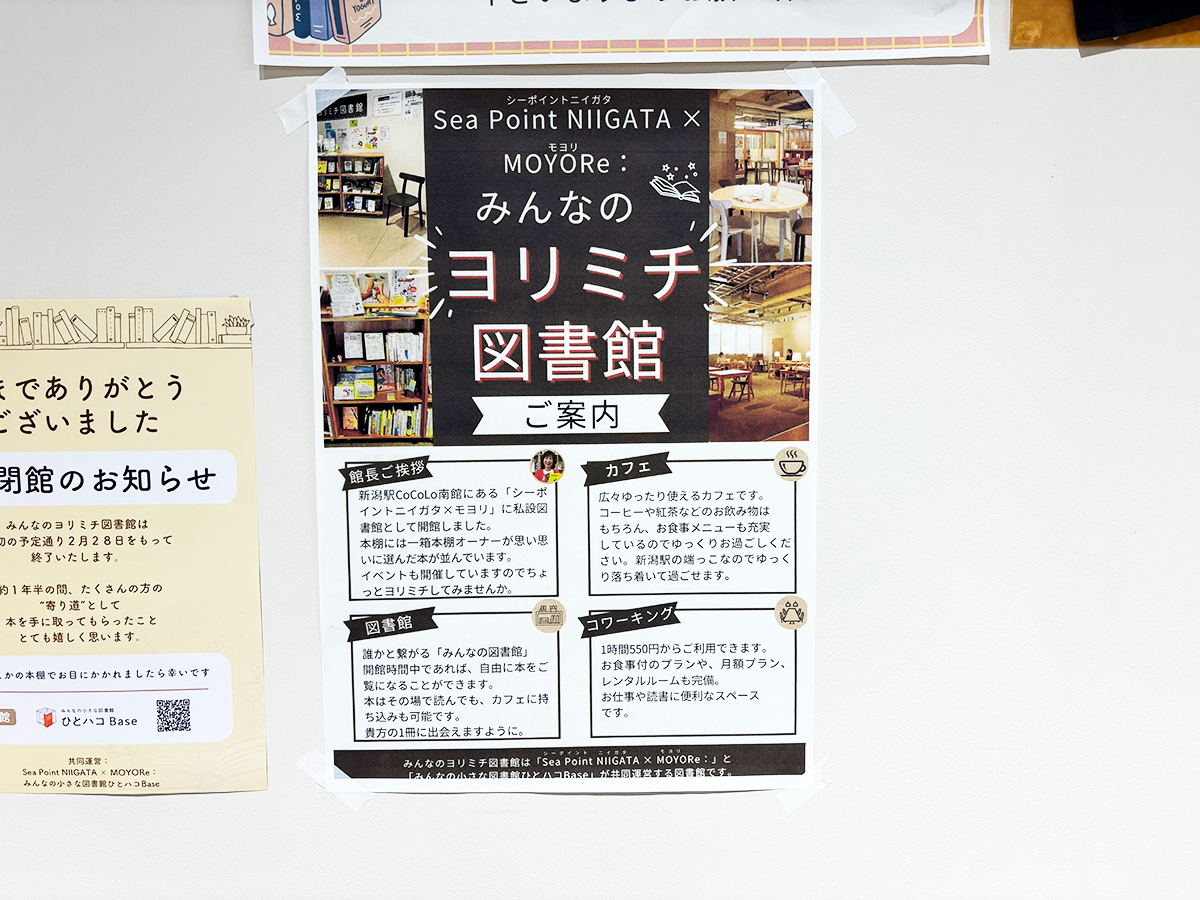 YOGURT
シーポイントニイガタ
Sea Point NIIGATA ×
モヨリ
MOYORe：
みんなの
ヨリミチ
図書館
ご案内
館長ご挨拶
新潟駅CoCoLo南館にある「シーポ
イントニイガタ×モヨリ」に私設図
書館として開館しました。
本棚には一箱本棚オーナーが思い思
いに選んだ本が並んでいます。
イベントも開催していますのでちょ
っとヨリミチしてみませんか。
カフェ
広々ゆったり使えるカフェです。
コーヒーや紅茶などのお飲み物は
もちろん、お食事メニューも充実
しているのでゆっくりお過ごしくだ
さい。新潟駅の端っこなのでゆっく
り落ち着いて過ごせます。
図書館
誰かと繋がる「みんなの図書館」
開館時間中であれば、自由に本をご
覧になることができます。
本はその場で読んでも、カフェに持
ち込みも可能です。
貴方の1冊に出会えますように。
コワーキング
1時間550円からご利用できます。
お食事付のプランや、月額プラン、
レンタルルームも完備。
お仕事や読書に便利なスペース
です。
シーポイント ニイガタ モヨリ
みんなのヨリミチ図書館は「Sea Point NIIGATA × MOYORe：」と
「みんなの小さな図書館ひとハコBase」が共同運営する図書館です。
までありがとう
ございました
閉館のお知らせ
みんなのヨリミチ図書館は
初の予定通り２月２８日をもって
終了いたします。
約１年半の間、たくさんの方の
“寄り道”として
本を手に取ってもらったこと
とても嬉しく思います。
かの本棚でお目にかかれましたら幸いです
館
みんなの小さな図書館
ひとハコ Base
共同運営：
Sea Point NIIGATA × MOYORe：
みんなの小さな図書館ひとハコBase